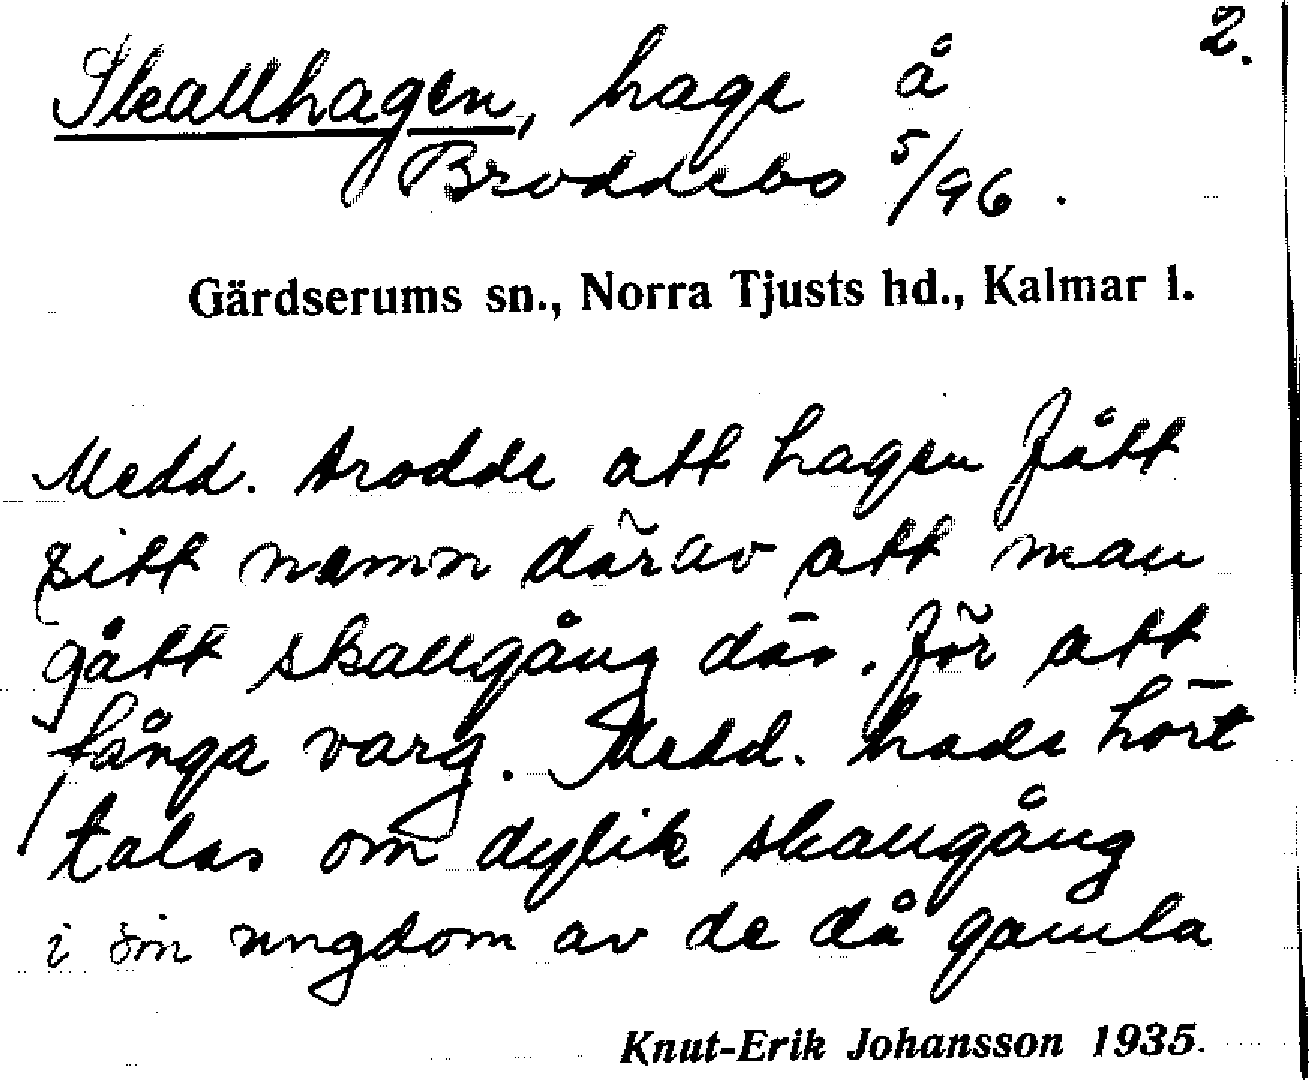 2.
Skallhagen, hage å
Broddebo 5/96.
Gärdserums sn., Norra Tjusts hd., Kalmar l.
Medd. trodde att hagen fått
sitt namn därav att man
gått skallgång där. för att
fånga varg. Medd. hade hört
talas om dylik skallgång
i sin ungdom av de då gamla
Knut-Erik Johansson 1935.